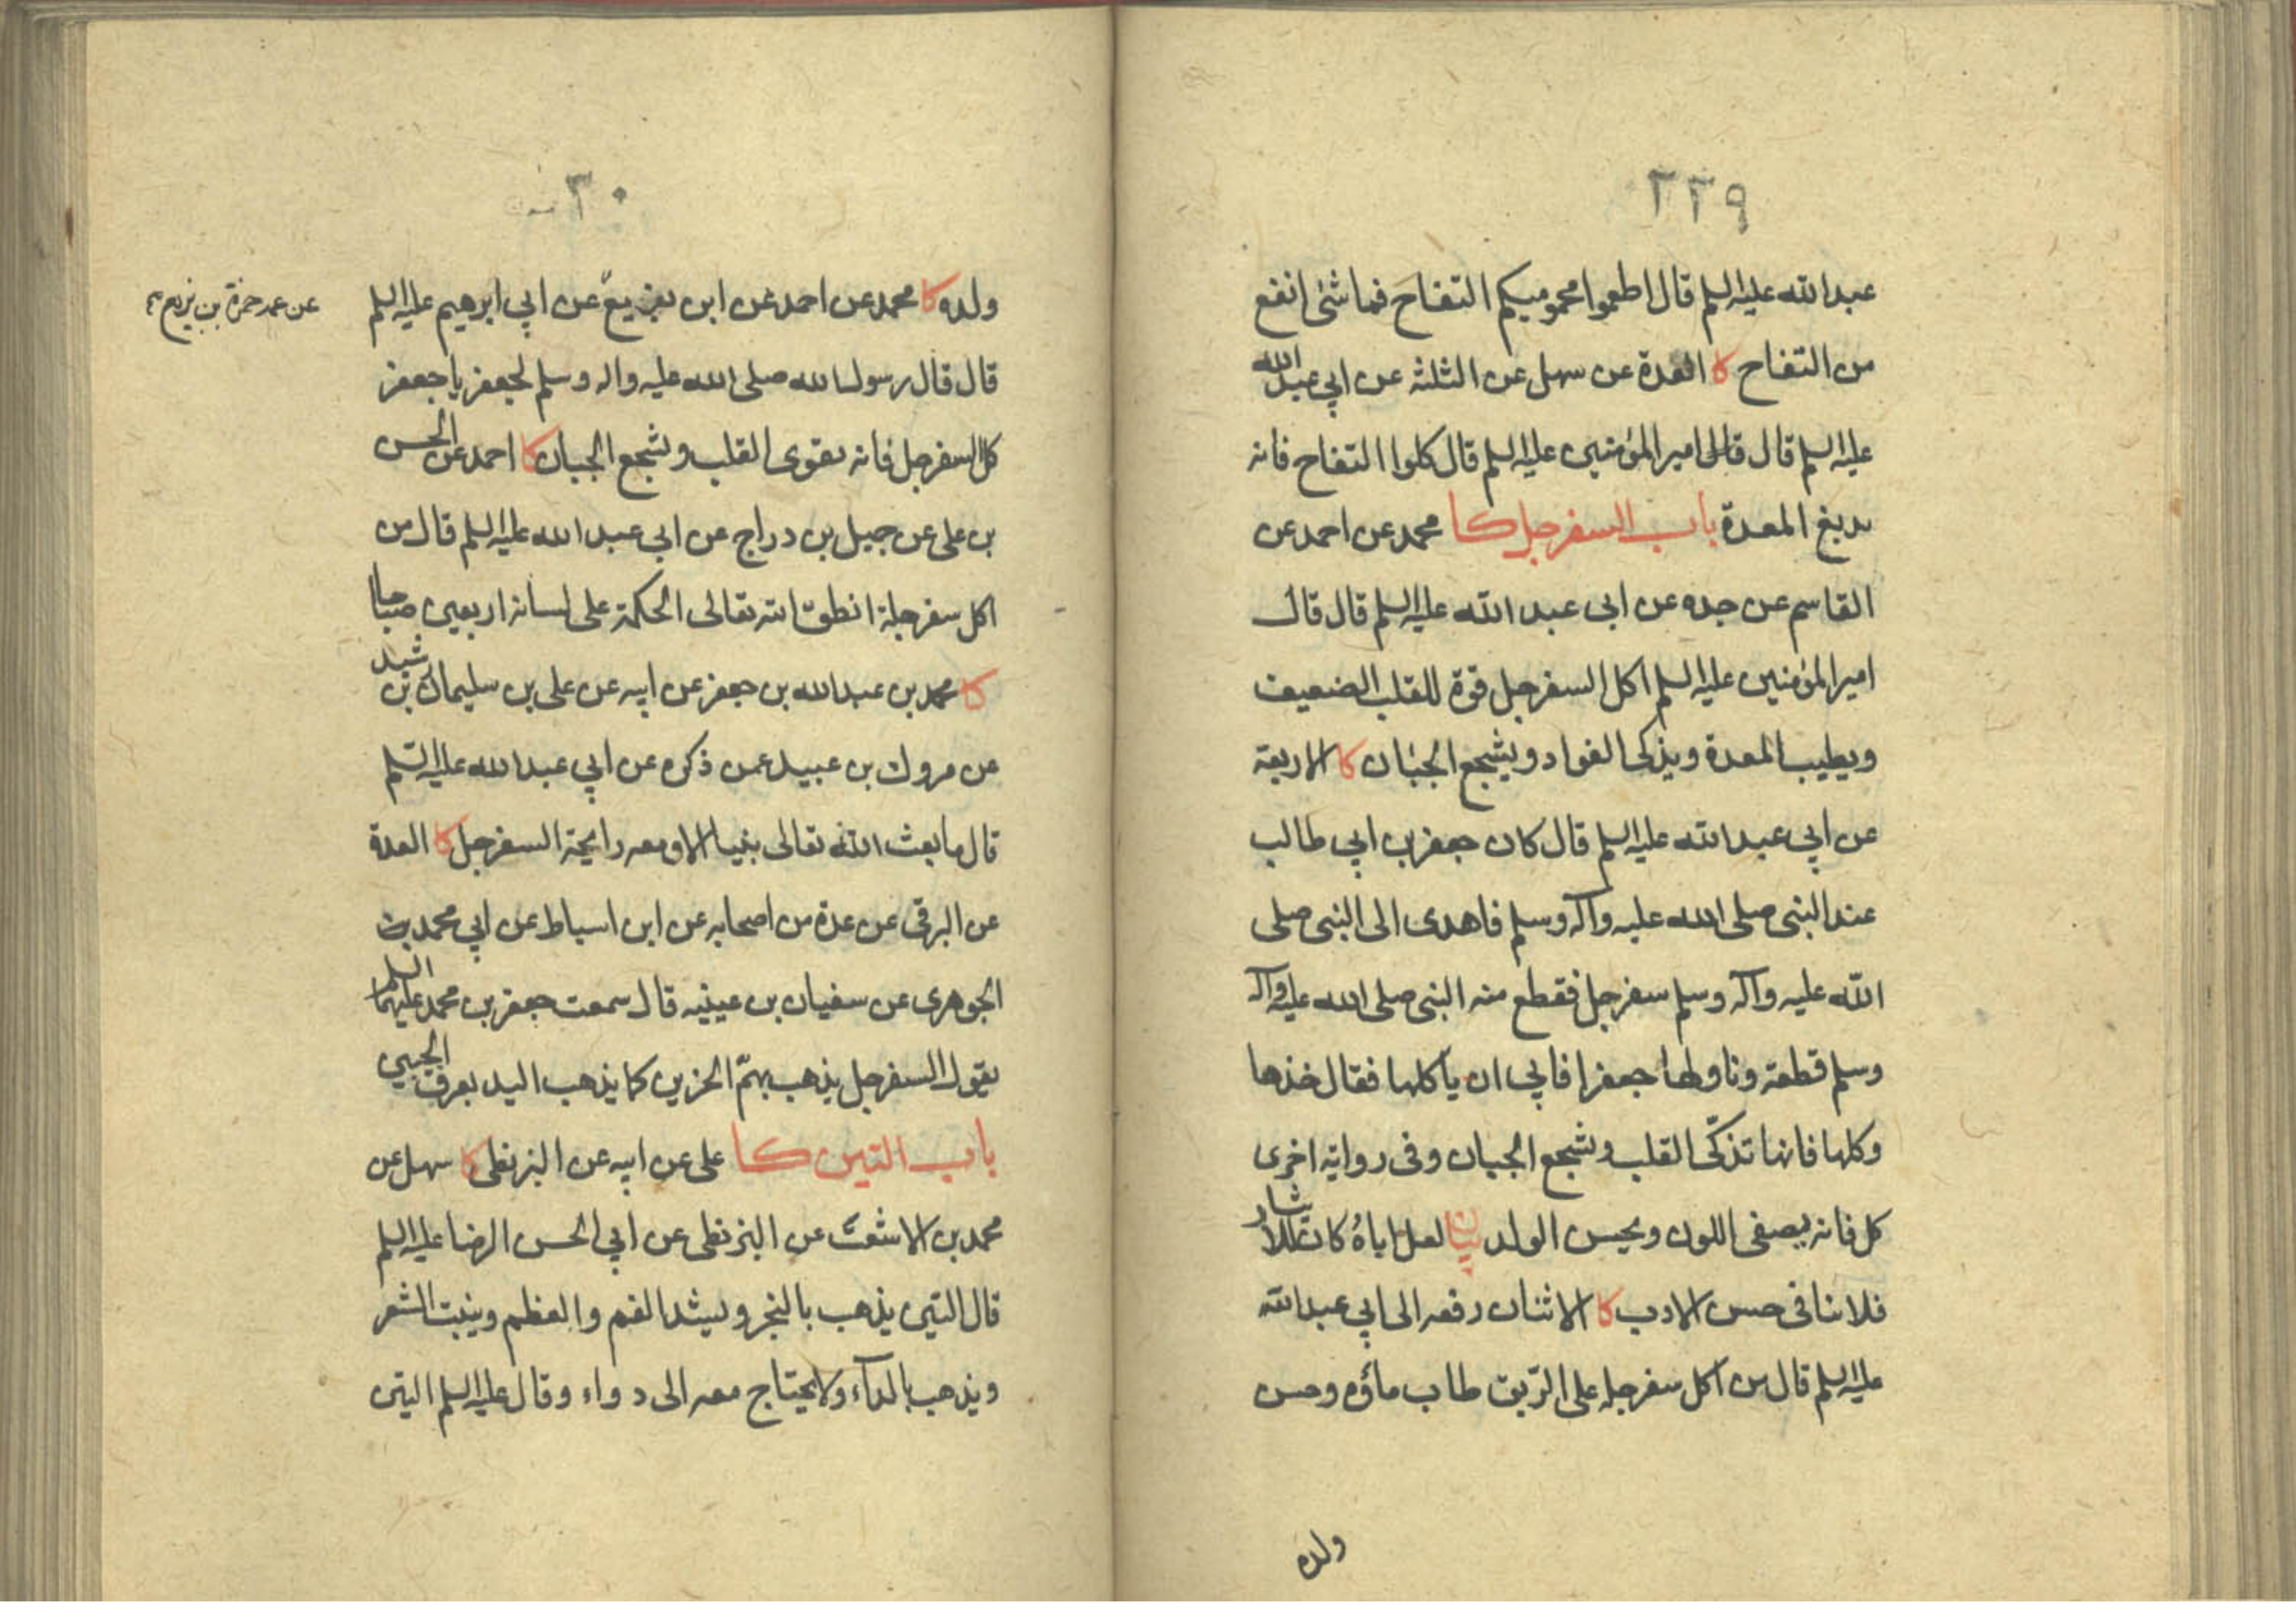 ٢٢٩
عبدالله عليه السلم قال اطعموا محموميكم التفاح فما شئ انفع
من التفاح كا العدة عن سهل عن الثلثة عن ابي عبدالله
عليه السلم قال قال لى اميرالمؤمنين عليه السلم قال كلوا التفاح فانه
يدبغ المعدة باب السفرجل كا محمد عن احمد عن
القاسم عن جده عن ابى عبد الله عليه السلم قال قال
اميرالمؤمنين عليه السلم اكل السفرجل قوة للقلب الضعيف
ويطيب المعدة ويذكى الفواد ويشجع الجبان كا الاربعة
عن ابي عبدالله عليه السلم قال كان جعفر بن ابي طالب
عند النبى صلى الله عليه وآله وسلم فاهدى الى النبى صلى
الله عليه وآله وسلم سفرجل فقطع منه النبى صلى الله عليه وآله
وسلم قطعة وناولها جعفرا فابي ان يأكلها فقال خذها
وكلها فانها تذكّى القلب وتشجع الجبان وفى رواية اخرى
كل فانه يصفى اللون ويحسن الولد بيان لعل اباؤه كان للايثار
فلا ينافى حسن الادب كا الاثنان رفعه الى ابي عبدالله
عليه السلم قال من اكل سفرجلة على الرّيق طاب ماؤه وحسن
ولده
٢٣٠
ولده كا محمد عن احمد عن ابن بزيع عن ابي ابرهيم عليه السلم
عن عمه حمزة بن بزيع
قال قال رسول الله صلى الله عليه واله وسلم لجعفر يا جعفر
كل السفرجل فانه يقوى القلب ويشجع الجبان كا احمد عن الحسن
بن على عن جميل بن دراج عن ابي عبد الله عليه السلم قال من
اكل سفرجلة انطق الله تعالى الحكمة على لسانه اربعين صباحا
كا محمد بن عبدالله بن جعفر عن ابيه عن على بن سليمان بن رشيد
عن مروك بن عبيد عمن ذكره عن ابي عبدالله عليه السّلم
قال ما بعث الله تعالى نبيا الا ومعه رايحة السفرجل كا العدة
عن البرقى عن عدة من اصحابه عن ابن اسباط عن ابي محمد
الجوهرى عن سفيان بن عيينه قال سمعت جعفر بن محمد عليهما السلم
يقول السفرجل يذهب بهمّ الحزين كما يذهب اليد بعرق الجبين
باب التين كا على عن ابيه عن البزنطى كا سهل عن
محمد بن الاشعث عن البزنطى عن ابي الحسن الرضا عليه السلم
قال التين يذهب بالبخر ويشد الفم والعظم وينبت الشعر
ويذهب بالدآء ولا يحتاج معه الى دواء وقال عليه السلم التين